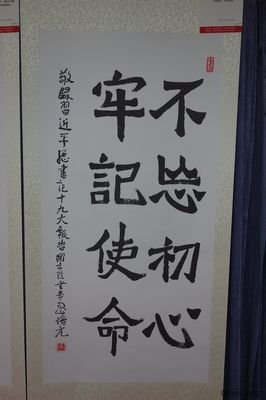 不忘初心
牢記使命
敬錄習近平總書記十九大報告